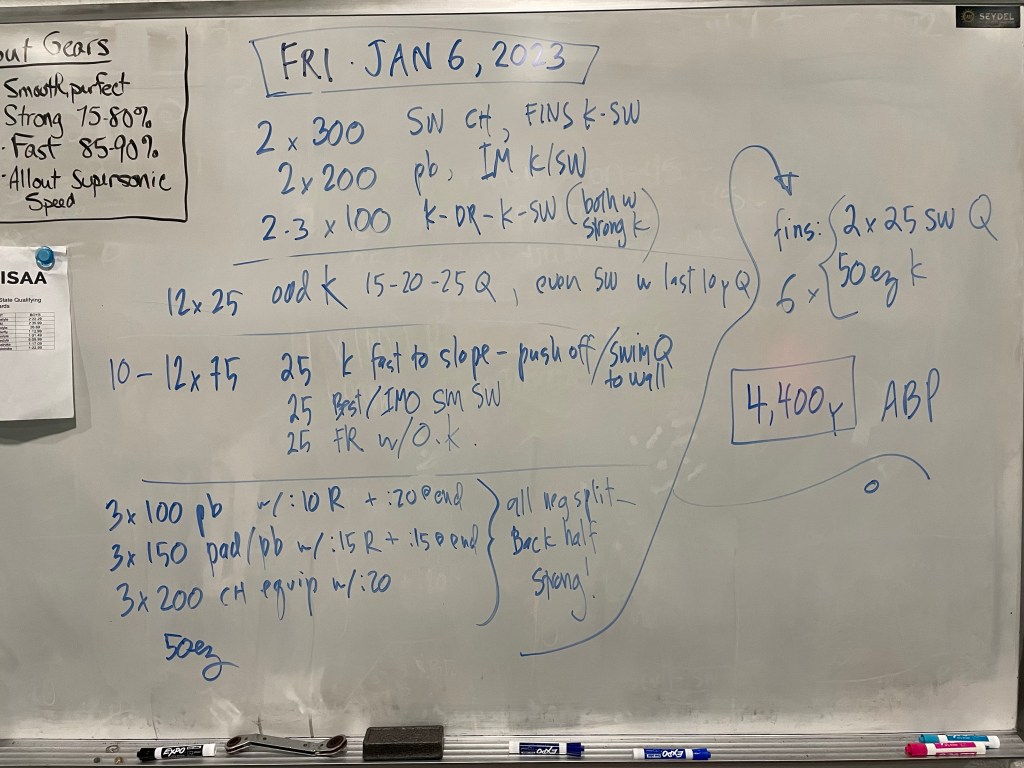 out Gears
Smooth, perfect
Strong 75-80%
· Fast 85-90%
· Allout Supersonic
Speed
ISAA
State Qualifying
FRI. JAN 6, 2023
2 x 300 SW CH, FINS K-SW
2 x 200 pb, IM K/SW
2-3 x 100 K-DR-K-SW (both w
strong k)
12 x 25 odd K 15-20-25 Q, even SW w last 10y Q
10-12 x 75 25 K fast to slope - push off/swim Q
to wall
25 Best/IMO SM SW
25 FR w/O.K.
3 x 100 pb w/:10 R + :20 @ end
3 x 150 pad/pb w/:15 R + :15 @ end
3 x 200 CH equip w/:20
all neg split-
Back half
Strong!
50ez
fins:
6 x
2 x 25 SW Q
50 ez k
4,400y ABP
SEYDEL
EXPO
EXPO
EXPO